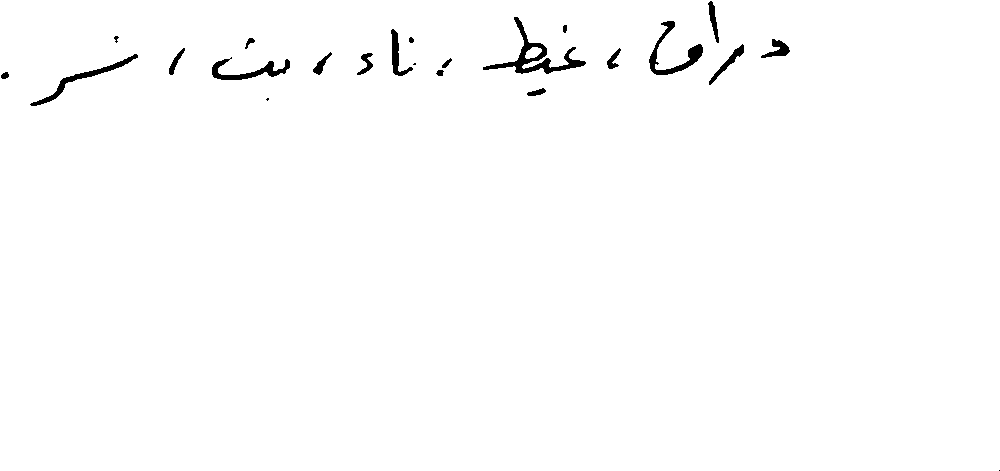 دراق ، غيظ ، ناء ، بث ، نسر .